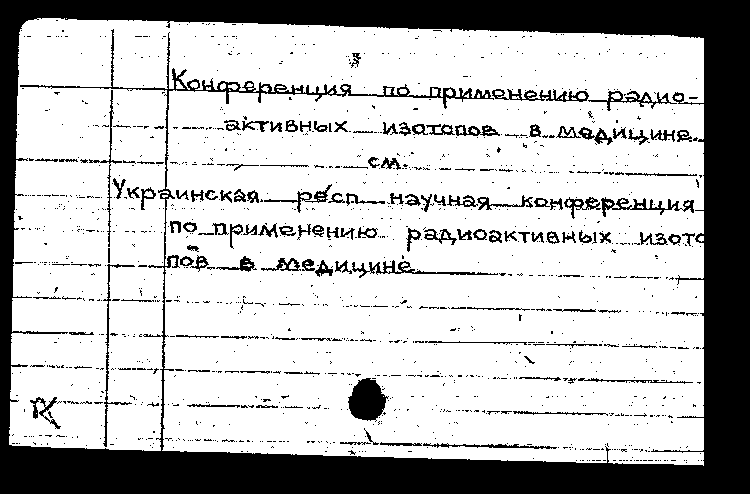 Конференция по применению радио-
активных изотопов в медицине
см.
Украинская респ научная конференция
по применению радиоактивных изото
пов в медицине